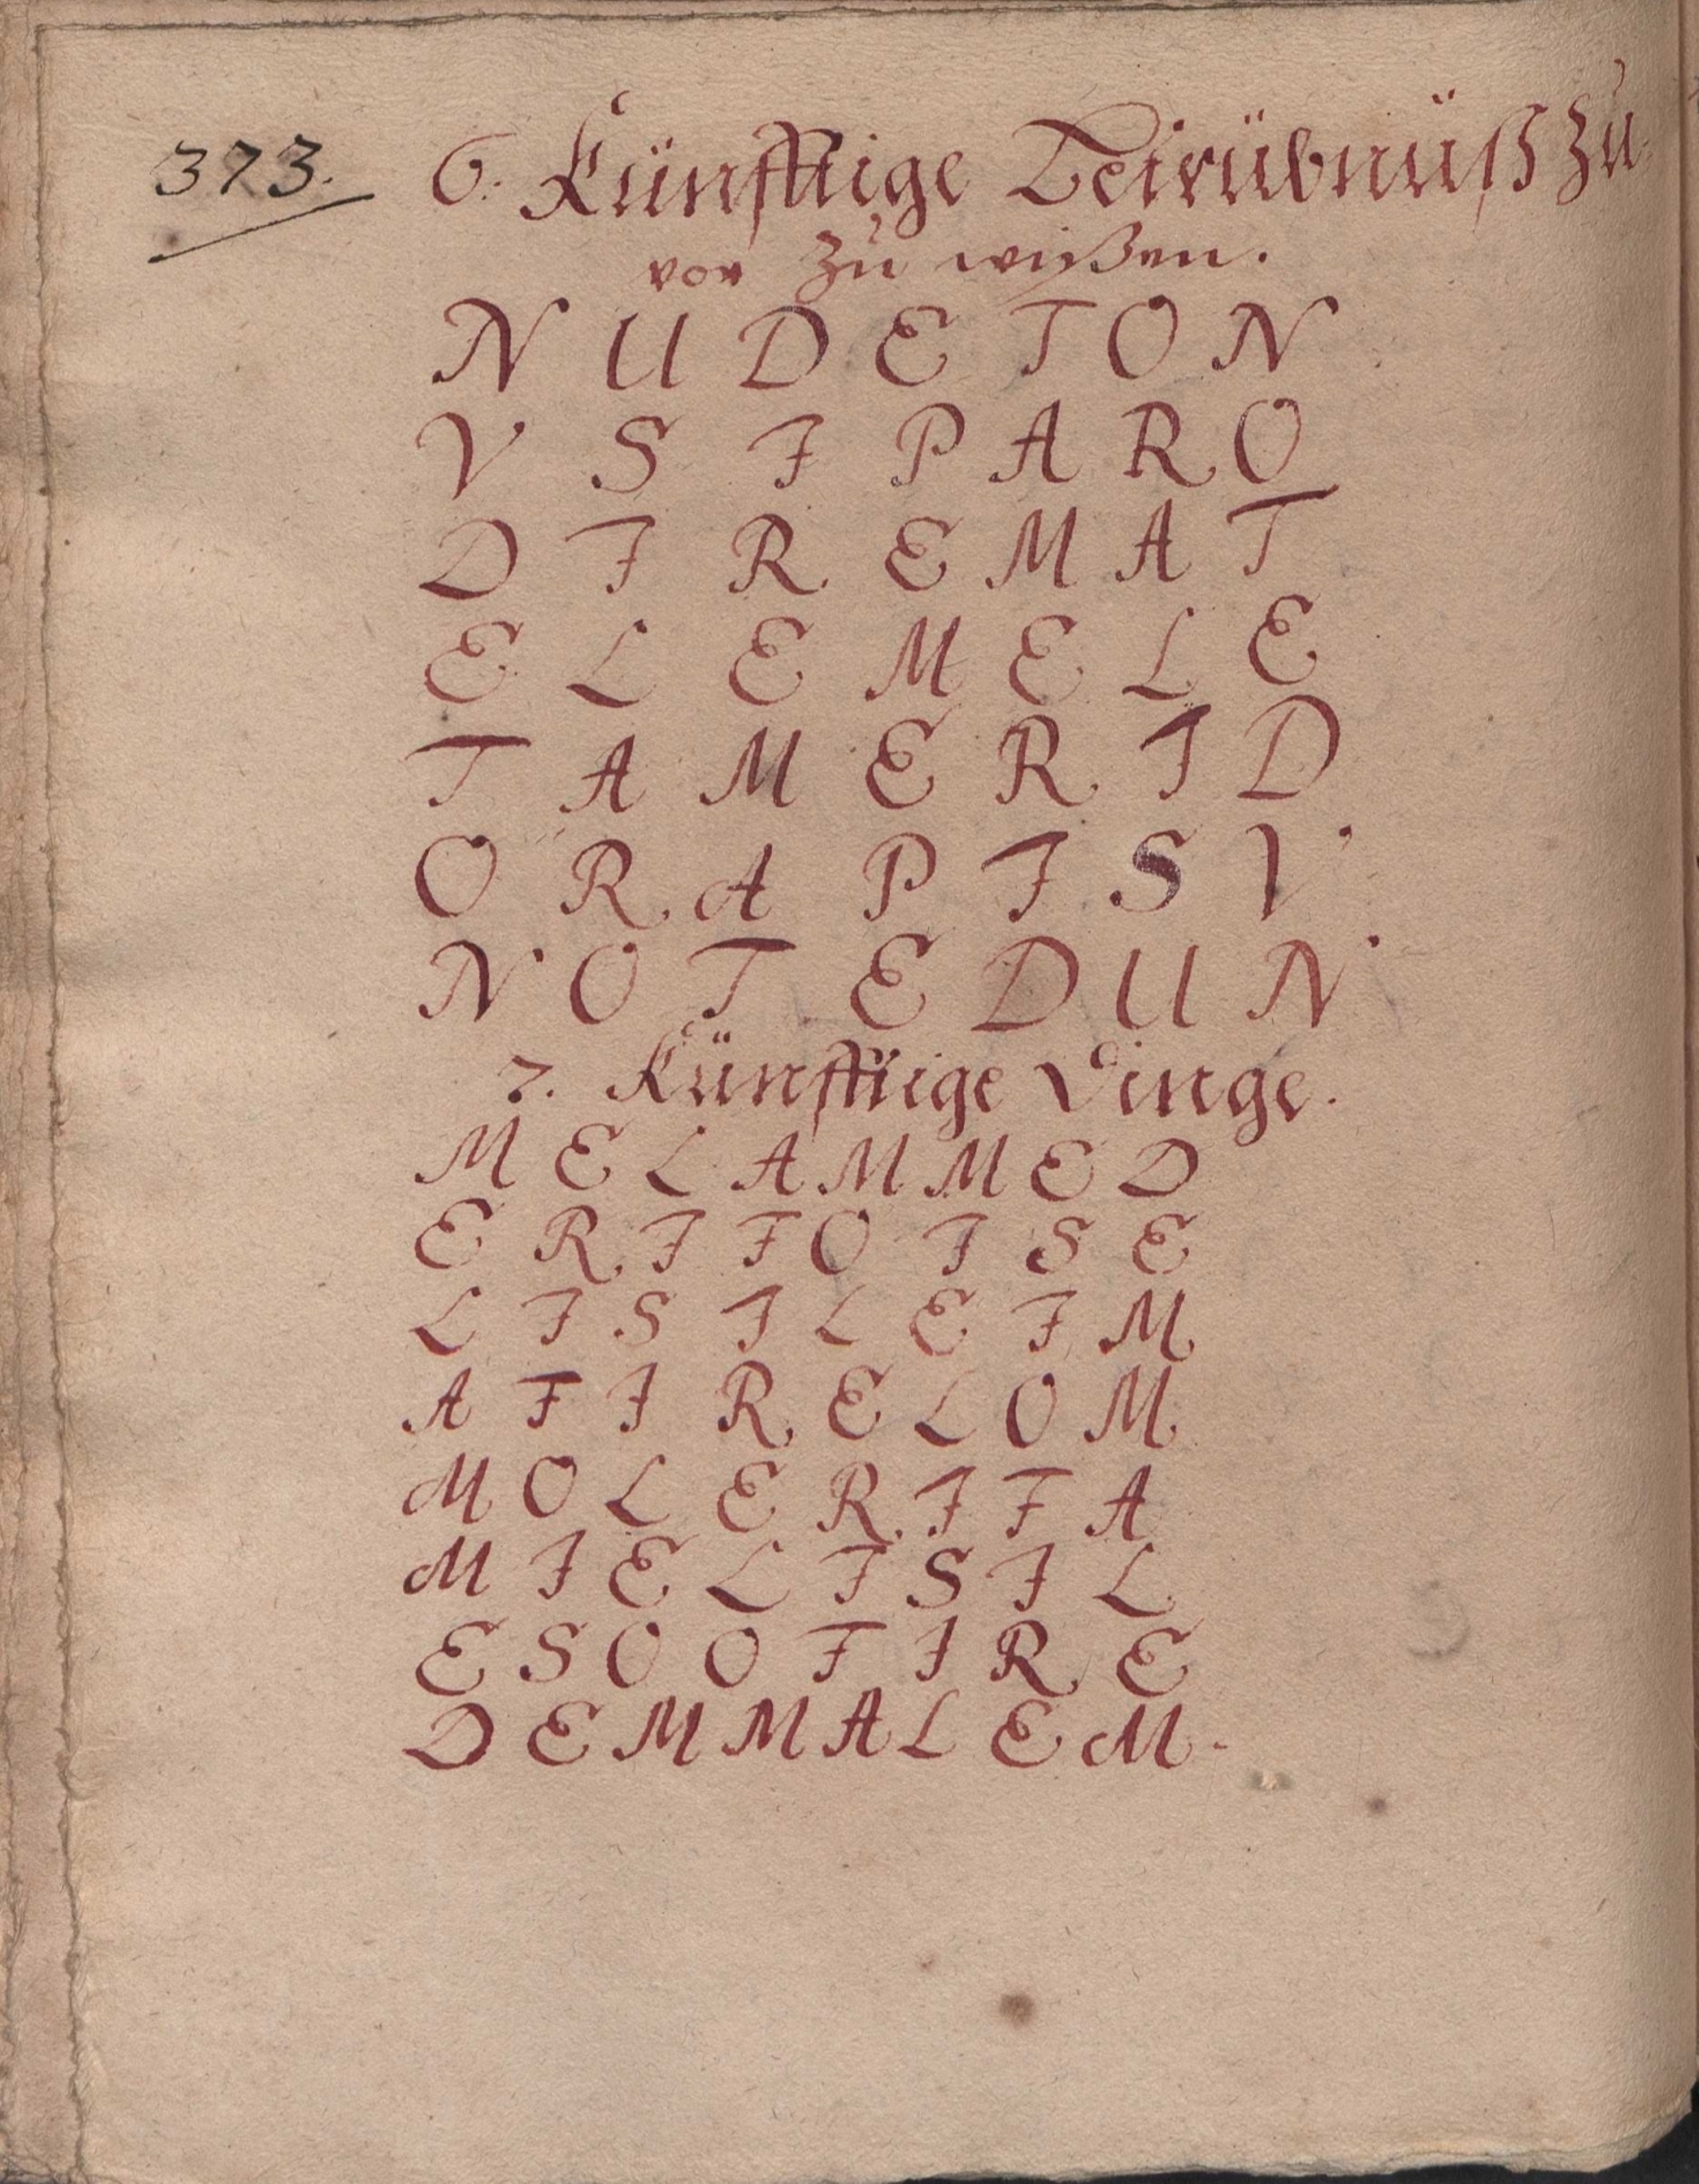 373. 6. Künfftige Betrübnüß zu
vor zu wißen.
N U D E T O N
V S I P A R O
D I R E M A T
E L E M E L E
T A M E R I D
O R A P I S V
N O T E D U N
7. Künfftige Dinge.
M E L A M M E D
E R I F O I S E
L I S I L E I M
A F I R E L O M
M O L E R I F A
M I E L I S I L
E S O O F I R E
D E M M A L E M.